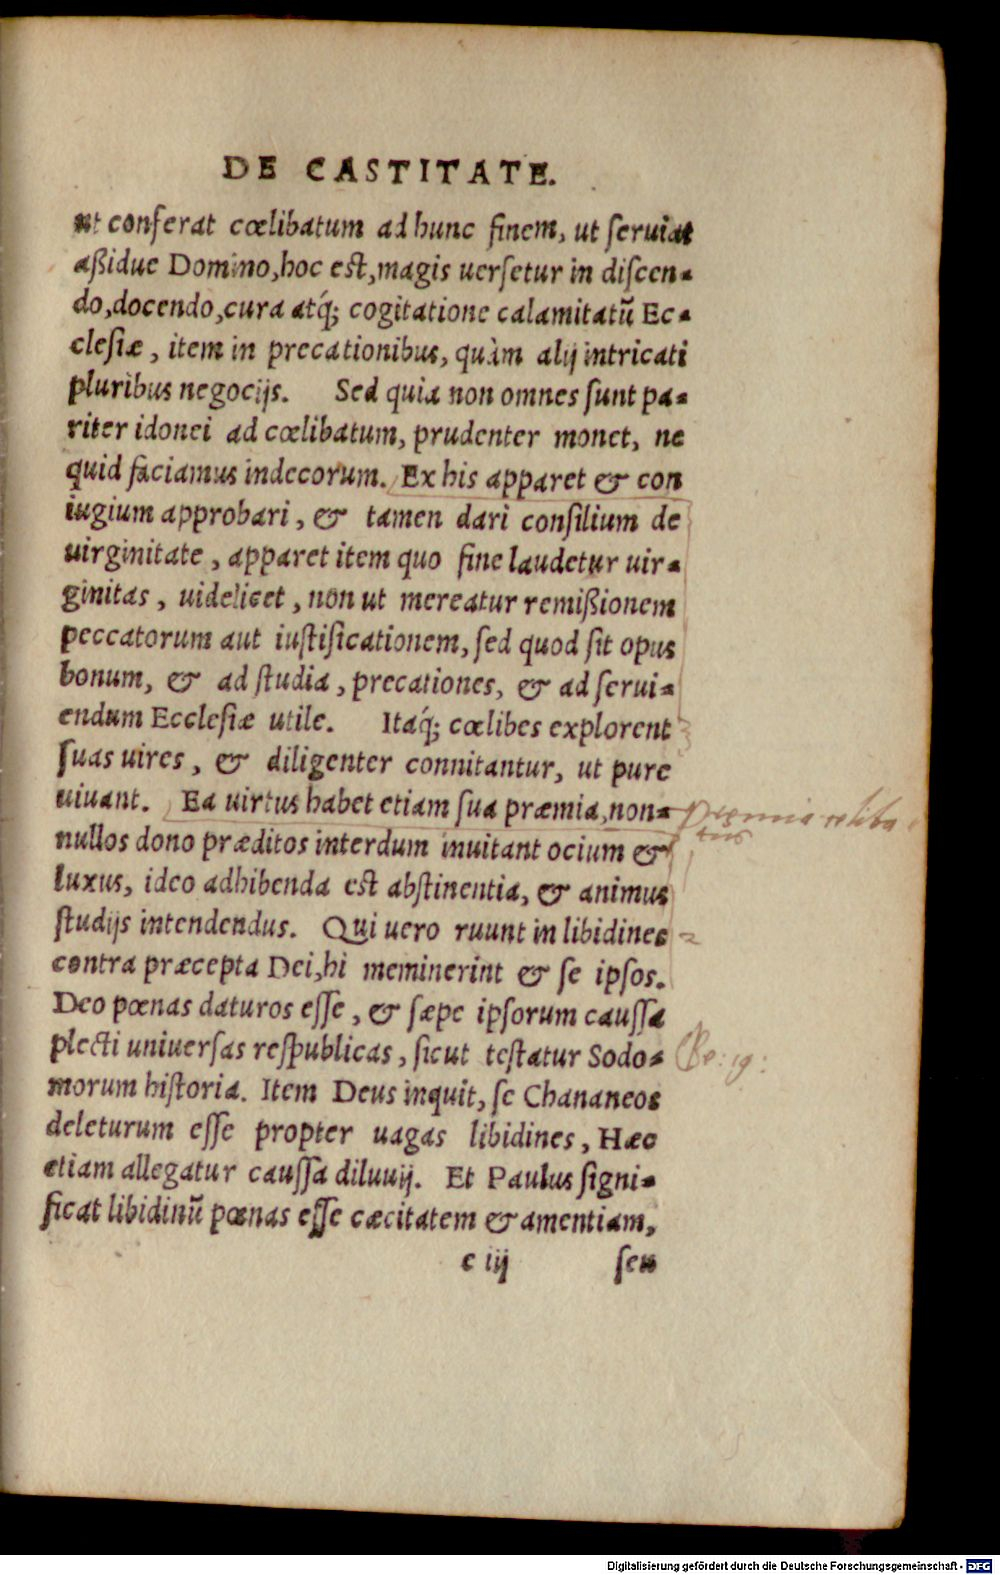 DE CASTITATE.
ut conferat cœlibatum ad hunc finem, ut seruiat
aßidue Domino, hoc est, magis uersetur in discen-
do, docendo, cura atq́; cogitatione calamitatũ Ec-
clesiæ, item in precationibus, quàm alij intricati
pluribus negocijs. Sed quia non omnes sunt pa-
riter idonei ad cœlibatum, prudenter monet, ne
quid faciamus indecorum. Ex his apparet & con
iugium approbari, & tamen dari consilium de
uirginitate, apparet item quo fine laudetur uir-
ginitas, uidelicet, non ut mereatur remißionem
peccatorum aut iustificationem, sed quod sit opus
bonum, & ad studia, precationes, & ad serui-
endum Ecclesiæ utile. Itaq́; cœlibes explorent
suas uires, & diligenter connitantur, ut pure
uiuant. Ea uirtus habet etiam sua præmia, non-
præmia celiba
tus
nullos dono præditos interdum inuitant ocium &
luxus, ideo adhibenda est abstinentia, & animus
studijs intendendus. Qui uero ruunt in libidines
contra præcepta Dei, hi meminerint & se ipsos.
Deo pœnas daturos esse, & sæpe ipsorum caussa
plecti uniuersas respublicas, sicut testatur Sodo-
Ge: 19:
morum historia. Item Deus inquit, se Chananeos
deleturum esse propter uagas libidines, Hæc
etiam allegatur caussa diluuij. Et Paulus signi-
ficat libidinũ pœnas esse cæcitatem & amentiam,
c iij seu
Digitalisierung gefördert durch die Deutsche Forschungsgemeinschaft - DFG